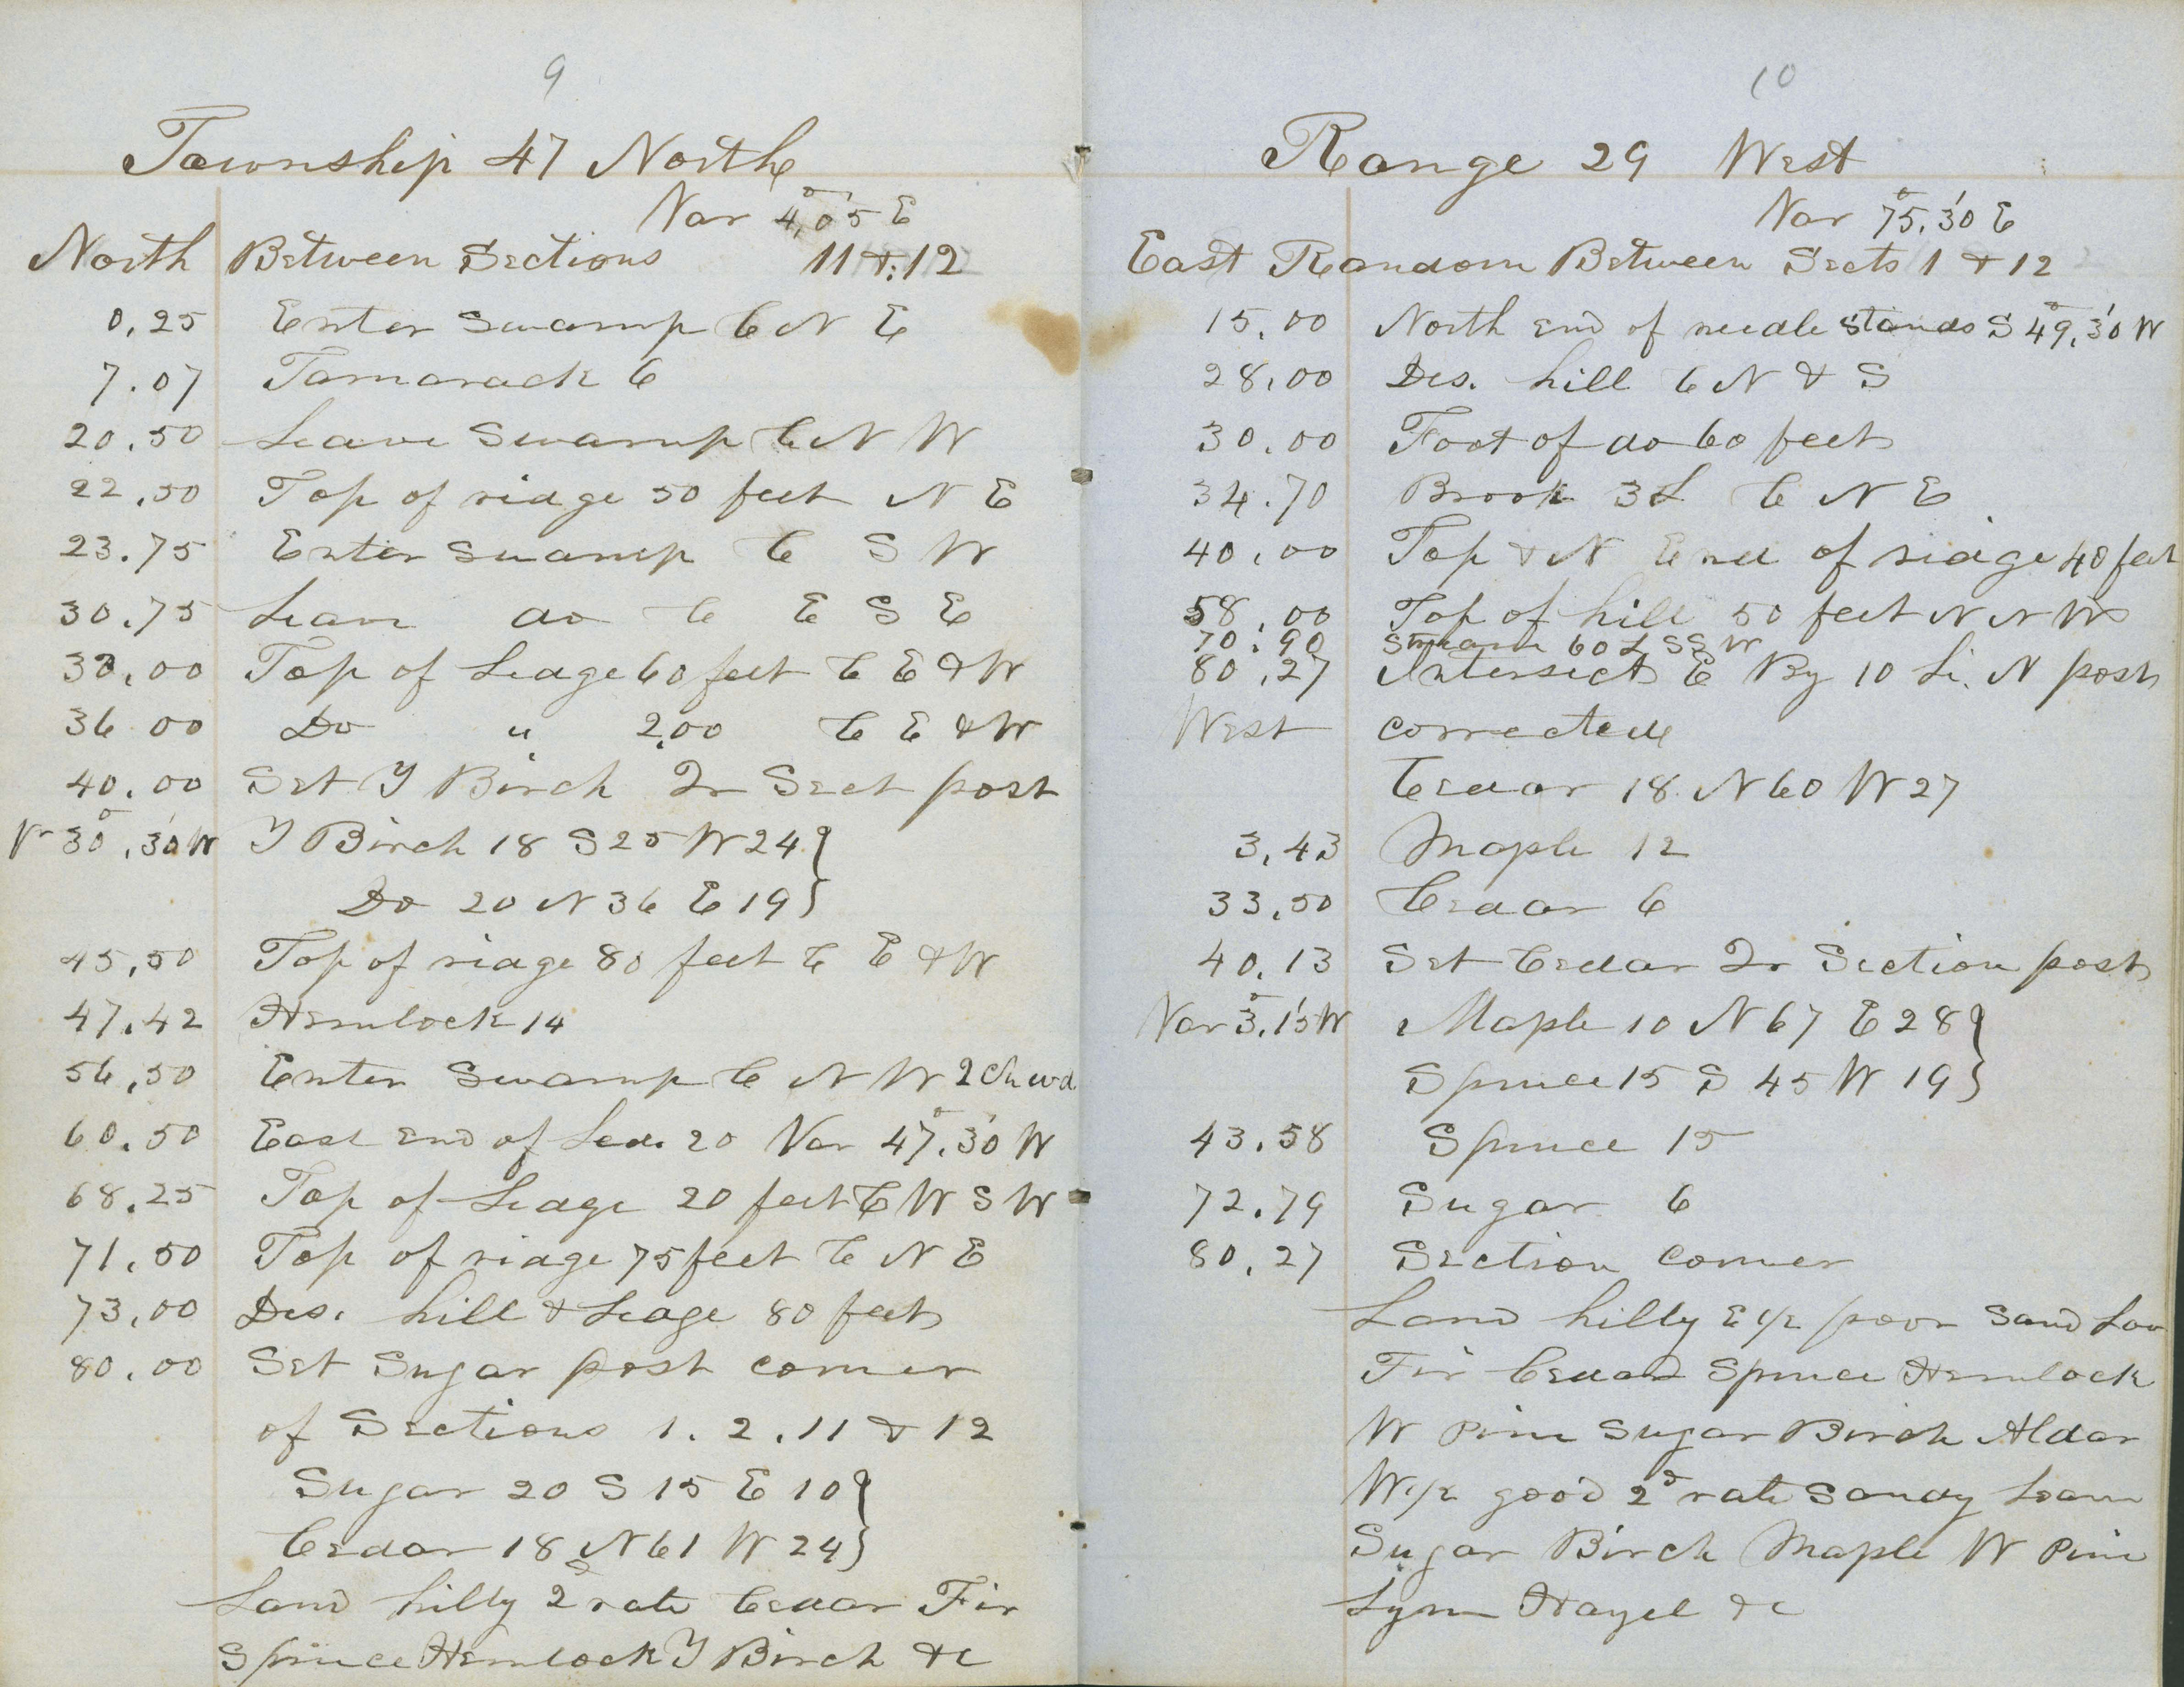 9
Township 47 North
Var 4°,05' E
North Between Sections 11 & 12
0,25 Enter Swamp C N E
7.07 Tamarack 6
20.50 Leave Swamp C N W
22.50 Top of ridge 50 feet N E
23.75 Enter Swamp C S W
30.75 Leave do C E S E
33,00 Top of Ledge 60 feet C E & W
36 00 Do " 2,00 C E & W
40.00 Set Y Birch Qr Sect post
Vr 30°,30' W Y Birch 18 S 25 W 24 }
Do 20 N 36 E 19 }
45,50 Top of ridge 80 feet C E & W
47.42 Hemlock 14
56,50 Enter Swamp C N W 2 Ch wd
60.50 East end of Led. 20 Var 47°,30' W
68.25 Top of Ledge 20 feet C W S W
71,50 Top of ridge 75 feet C N E
73,00 Des. hill & Ledge 80 feet
80.00 Set Sugar post corner
of Sections 1. 2. 11 & 12
Sugar 20 S 15 E 10 }
Cedar 18 N 61 W 24 }
Land hilly 2d rate Cedar Fir
Spruce Hemlock Y Birch &c
10
Range 29 West
Var 75°,30' E
East Random Between Sects 1 & 12
15,00 North end of needle stands S 49°,30' W
28,00 Des. hill C N & S
30.00 Foot of do 60 feet
34.70 Brook 3 L C N E
40,00 Top & N End of ridge 40 feet
58,00 Top of hill 50 feet N N W
70.90 Stream 60 L S S W
80,27 Intersect E By 10 Li. N post
West corrected
Cedar 18 N 60 W 27
3,43 Maple 12
33,50 Cedar 6
40,13 Set Cedar Qr Section post
Var 3°,15' W Maple 10 N 67 E 28 }
Spruce 15 S 45 W 19 }
43.58 Spruce 15
72.79 Sugar 6
80,27 Section corner
Land hilly E 1/2 poor Sand Loa
Fir Cedar Spruce Hemlock
W Pine Sugar Birch Aldar
W 1/2 good 2d rate Sandy Loam
Sugar Birch Maple W Pine
Lynn Hazel &c